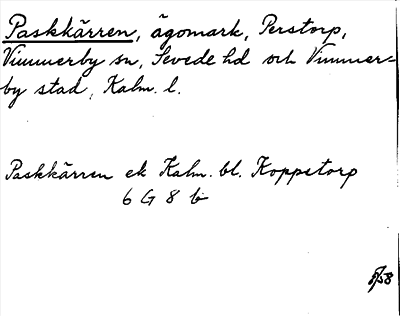 Paskkärren, ägomark, Perstorp,
Vimmerby sn, Sevede hd och Vimmer=
by stad, Kalm. l.
Paskkärren ek Kalm. bl. Koppetorp
6 G 8 b